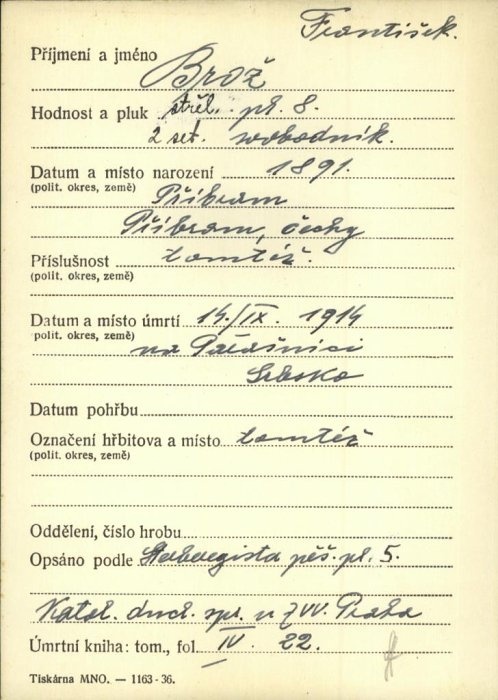 František.
Příjmení a jméno Brož
Hodnost a pluk střel. pl. 8.
2 set. svobodník.
Datum a místo narození 1891.
(polit. okres, země) Příbram
Příbram, Čechy
Příslušnost tamtéž.
(polit. okres, země)
Datum a místo úmrtí 14./IX. 1914
polit. okres, země) na
Srbsko
Datum pohřbu
Označení hřbitova a místo tamtéž
(polit. okres, země)
Oddělení, číslo hrobu
Opsáno podle pěš. pl. 5.
Katol. duch. spr. u ZVV. Praha
Úmrtní kniha: tom., fol. IV. 22.
Tiskárna MNO. — 1163-36.